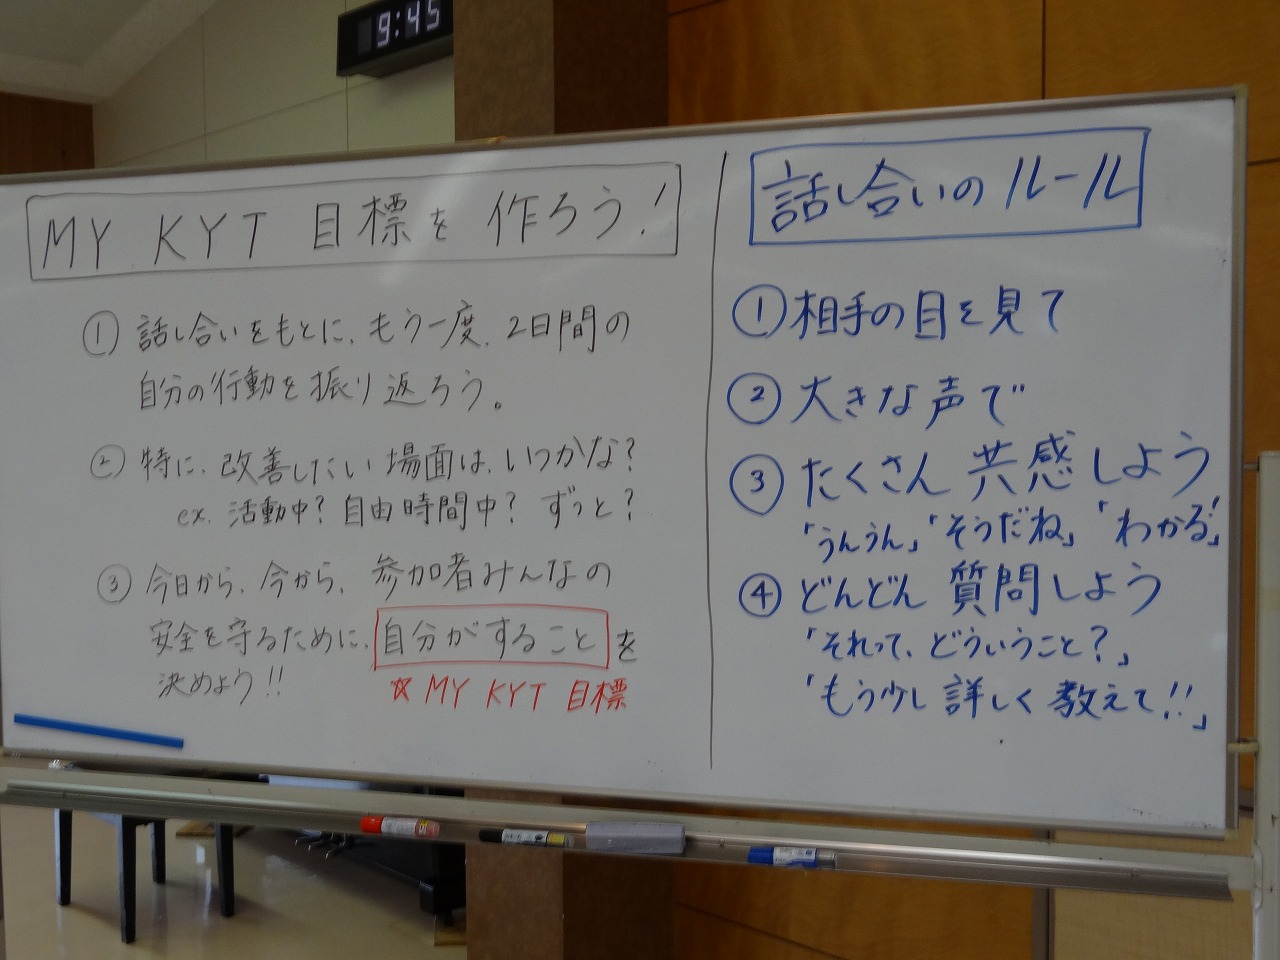 9:45
MY KYT 目標を作ろう!
① 話し合いをもとに、もう一度、2日間の
自分の行動を振り返ろう。
② 特に、改善したい場面は、いつかな?
ex. 活動中? 自由時間中? ずっと?
③ 今日から、今から、参加者みんなの
安全を守るために、自分がすることを
決めよう!!
☆ MY KYT 目標
話し合いのルール
① 相手の目を見て
② 大きな声で
③ たくさん共感しよう
「うんうん」「そうだね」「わかる!」
④ どんどん質問しよう
「それって、どういうこと?」
「もう少し詳しく教えて!!」